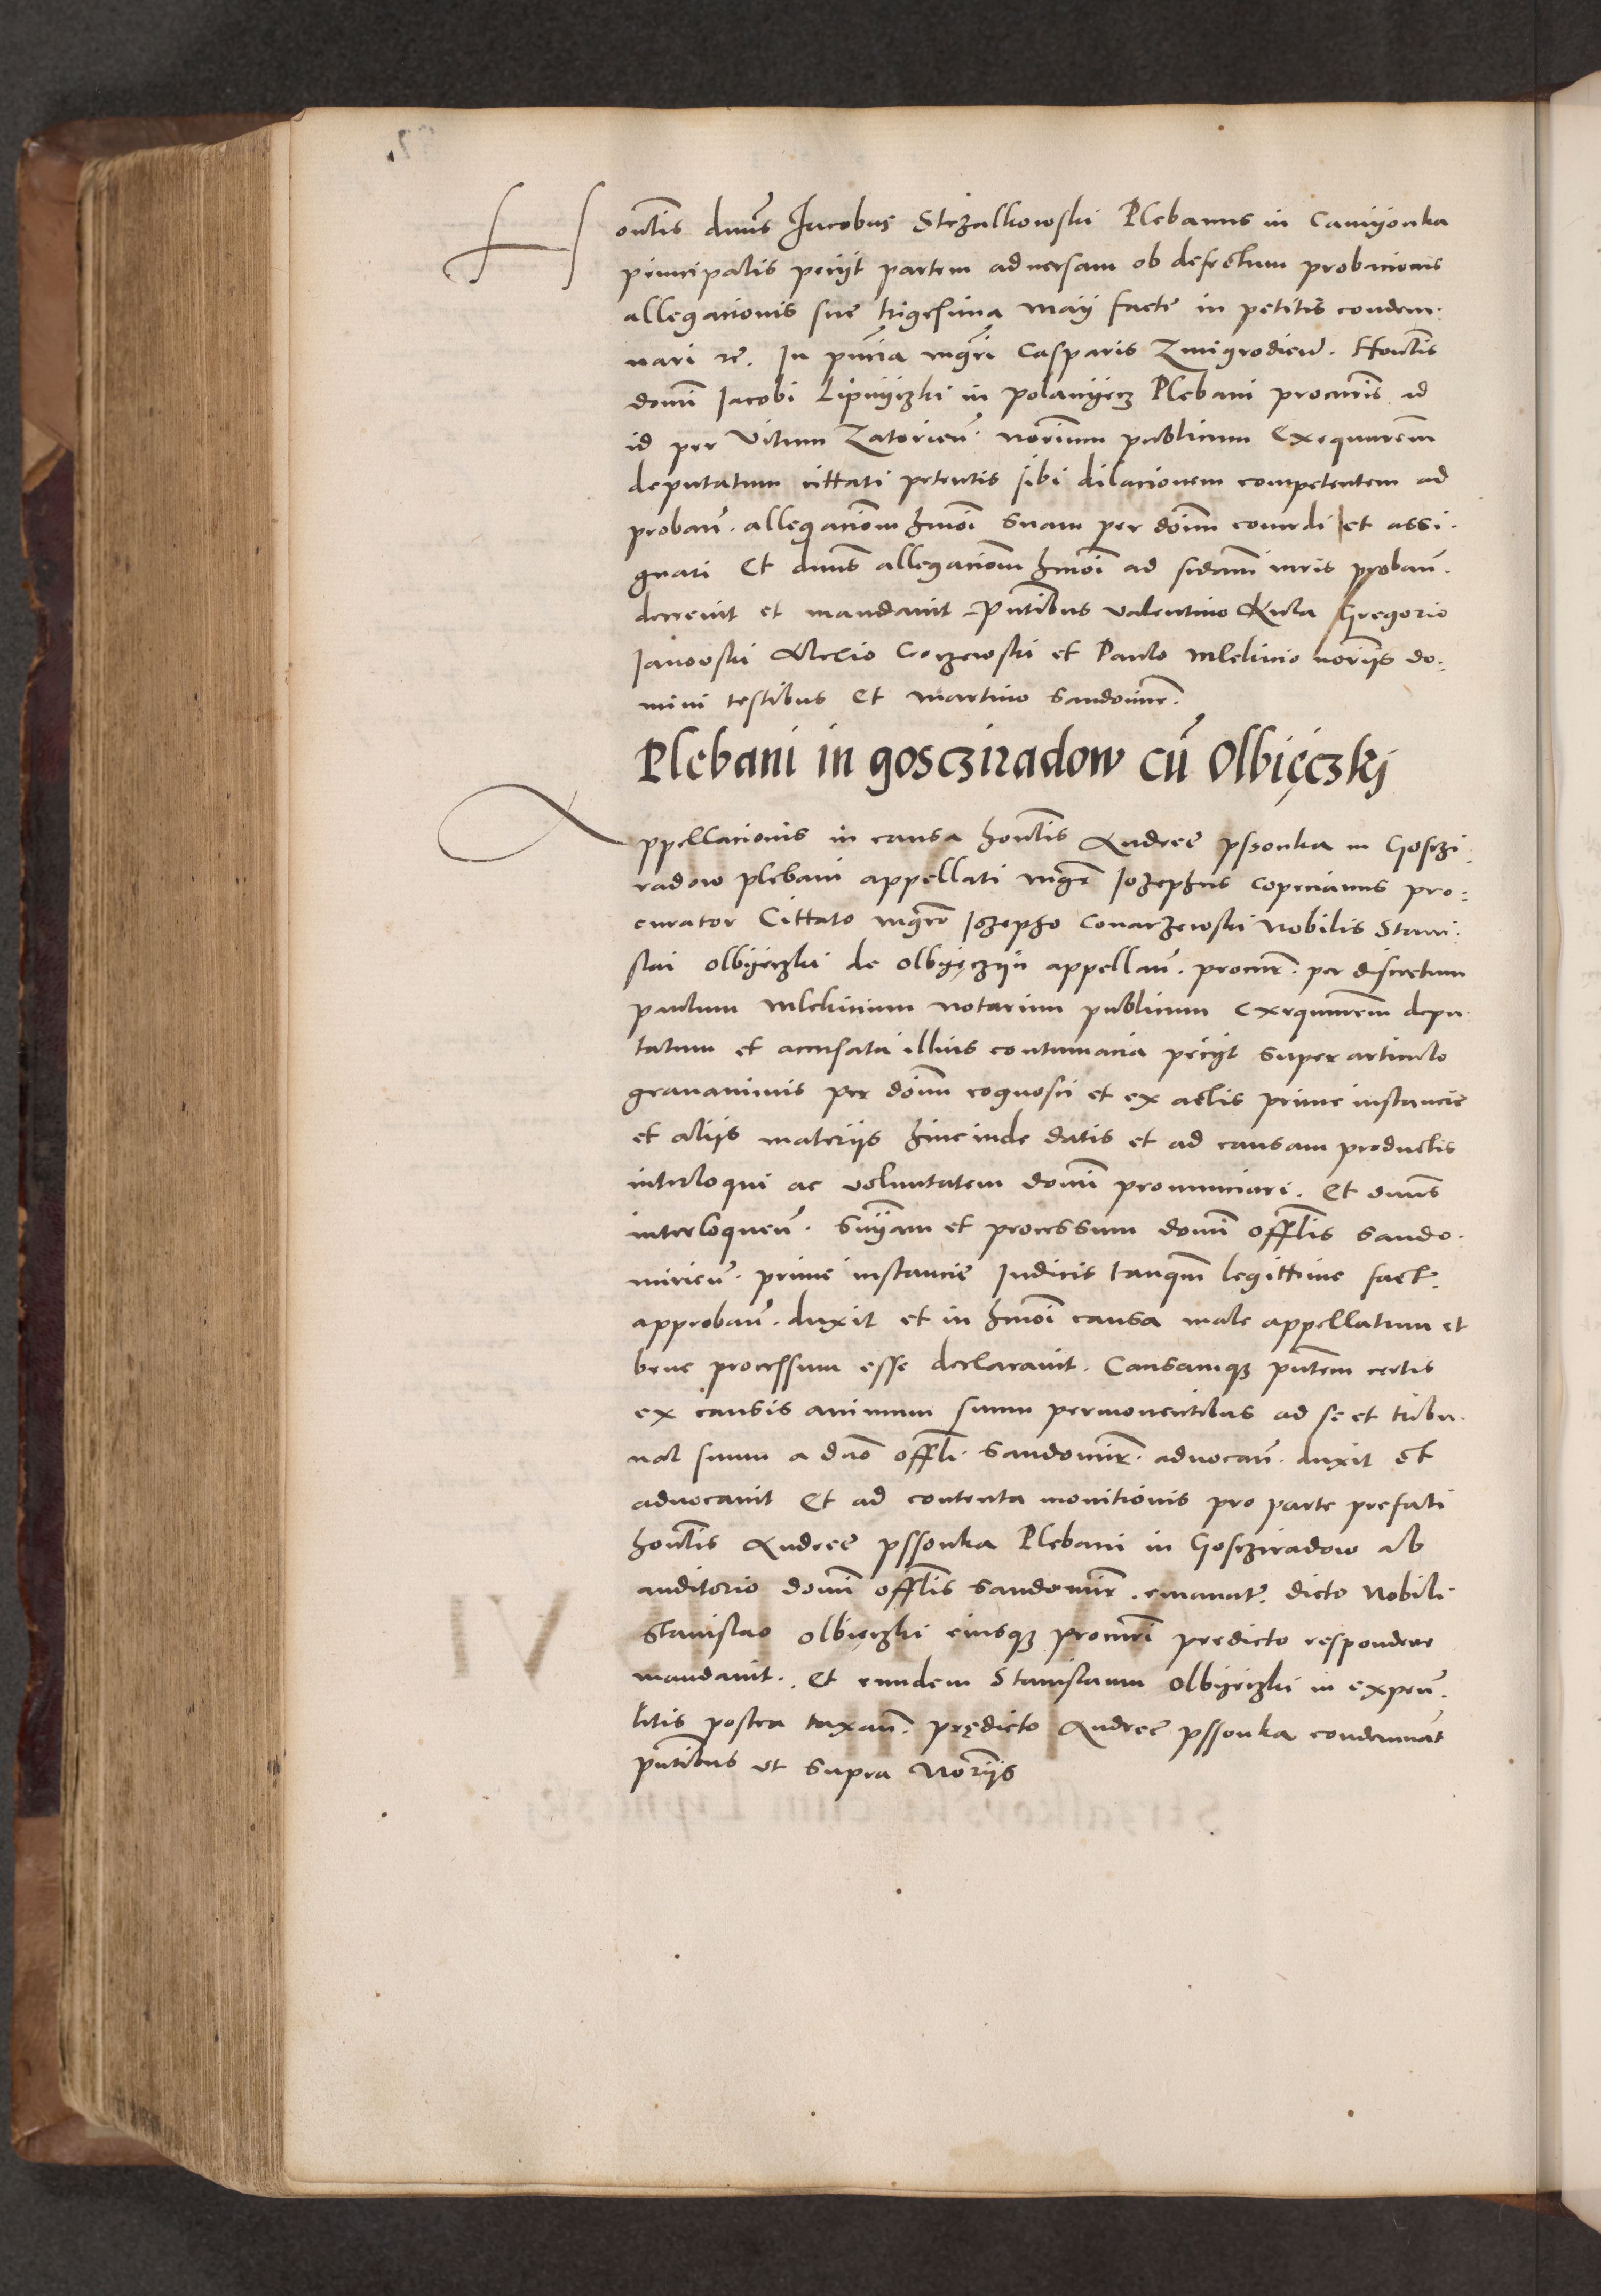 Honᵗlis dnus Jacobus Strzalkowski Plebanus in Camyonka
principalis peciit partem adversam ob defectum probacionis
allegacionis sue trigesima Maij facte in petitis condem:
nari etc. In pñcia mgri Casparis Zmigrodien̄. Honᵗlis
domi Jacobi Lipnyczki in Polanyecz Plebani procuris ad
id per Vitum Zatorien̄. norium publicum Exequutem
deputatum cittati petentis sibi dilacionem competentem ad
proban̄. allegaciom hmoi suam per doim concedi et assi:
gnari Et dnus allegaciom hmoi ad sidam iuris proban̄.
decrevit et mandavit pntibus Valentino Kula Gregorio
Janowski Alexio Gorzewski et Paulo Mlelinio noriis do:
mini testibus et Martino Sandomir.
Plebani in goscziradow cū Olbięczkj
Appellacionis in causa honᵗlis Andree pssonka in Gosczi:
radow plebani appellati mgr Jozephus Copecianus pro:
curator Cittato mgro Jozepho Conarzewski Nobilis Stani:
slai Olbyeczki de Olbyęczyn appellan̄. procur. per discretum
paulum Mlekinium notarium publicum Exequutem depu:
tatum et accusata illius contumacia peciit super articulo
gravaminis per doim cognosci et ex actis prime instancie
et aliis materiis hincinde datis et ad causam productis
interloqui ac voluntatem domi pronunciari. Et dnus
interloquen̄. snÿam et processum domi offlis Sando:
mirien̄. prime instancie Judicis tanqm legittime fact.
approban̄. duxit et in hmoi causa male appellatum et
bene processum esse declaravit. Causamq3 pntem certis
ex causis animum suum permoventibus ad se et tribu:
nal suum a dno offli. Sandomir. advocan̄. duxit et
advocavit Et ad contenta monitionis pro parte prefati
honᵗlis Andree pssonka Plebani in Goscziradow ab
auditorio domi offlis Sandomir. emanat. dicto Nobili
Stanislao Olbięczki eiusq3 procuri predicto respondere
mandavit. Et eundem Stanislaum Olbyęczki in expen̄.
litis postea taxan̄. prędicto Andree pssonka condemnat
pntibus ut supra Noriis